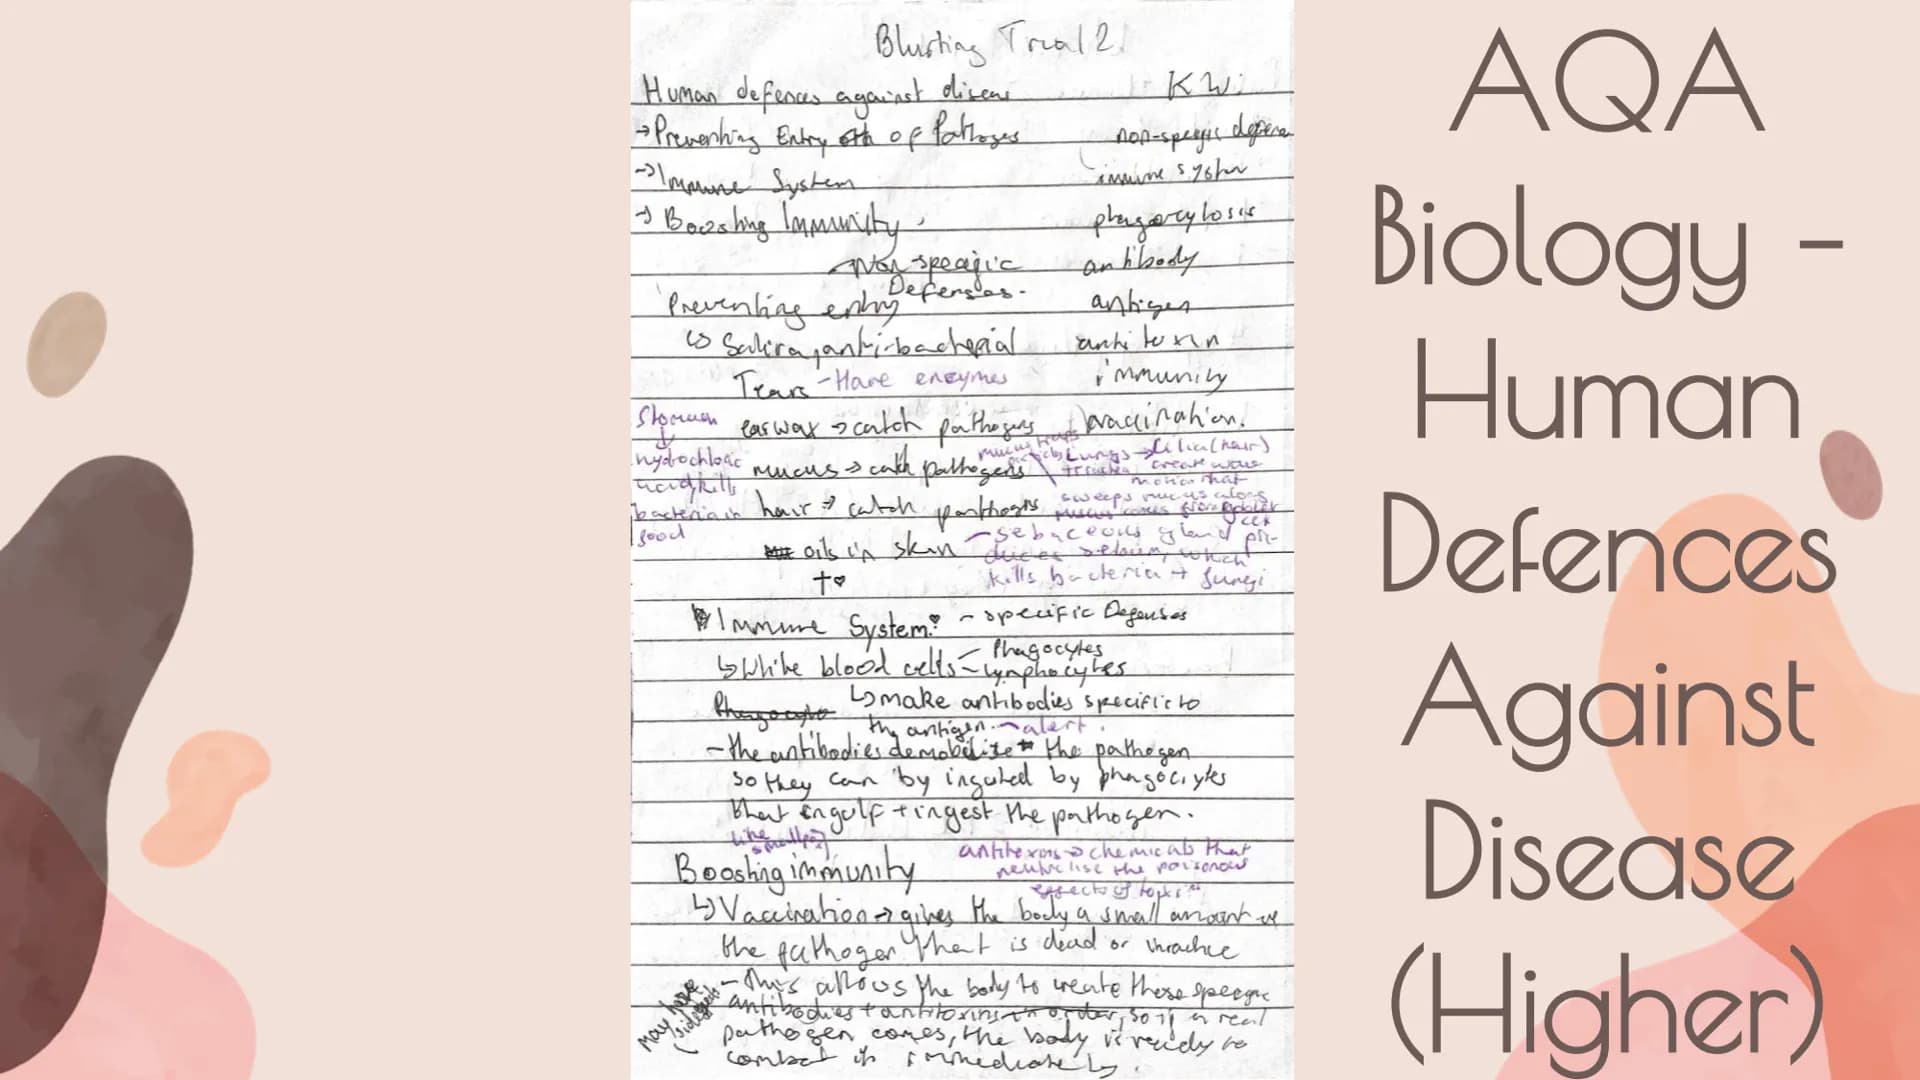 Blurting Trial 2.
Human defences against diseas
KW:
→ Preventing Entry of Pathoges
non-specific defence
→ Immune System
immune system
→ Boosting Immunity
phagocytosis
Non-specific
Defenses.
antibody
Preventing entry
antigen
↳ Saliva, anti-bacterial
antitoxin
Tears - Have enzymes
immunity
earwax → catch pathogens
vaccination.
Stomach
↓
hydrochloric
acid kills
bacteria in
food
mucus → catch pathogens
mucus traps
Lungs → Cilia (hair)
trachea create wave
motion that
sweeps mucus along
mucus comes from goblet
cell
hair → catch panthogens
oils in skin
- sebaceous gland pro-
duces sebum, which
kills bacteria + fungi
Immune System: - specific Defenses
↳ White blood cells - Phagocytes
- lymphocytes
Phagocyte
↳ make antibodies specific to
the antigen. - alert.
- the antibodies demobilise the pathogen
so they can by ingested by phagocytes
that engulf + ingest the pathogen.
like
smallpox
Boosting immunity
antitoxins → chemicals that
neutralise the poisonous
effects of toxins
↳ Vaccination → gives the body a small amount of
the pathogen that is dead or inactive
- This allows the body to create these specific
antibodies + antitoxins in order, so if a real
pathogen comes, the body is ready to
combat it immediately.
may have
side effects
AQA
Biology -
Human
Defences
Against
Disease
(Higher)